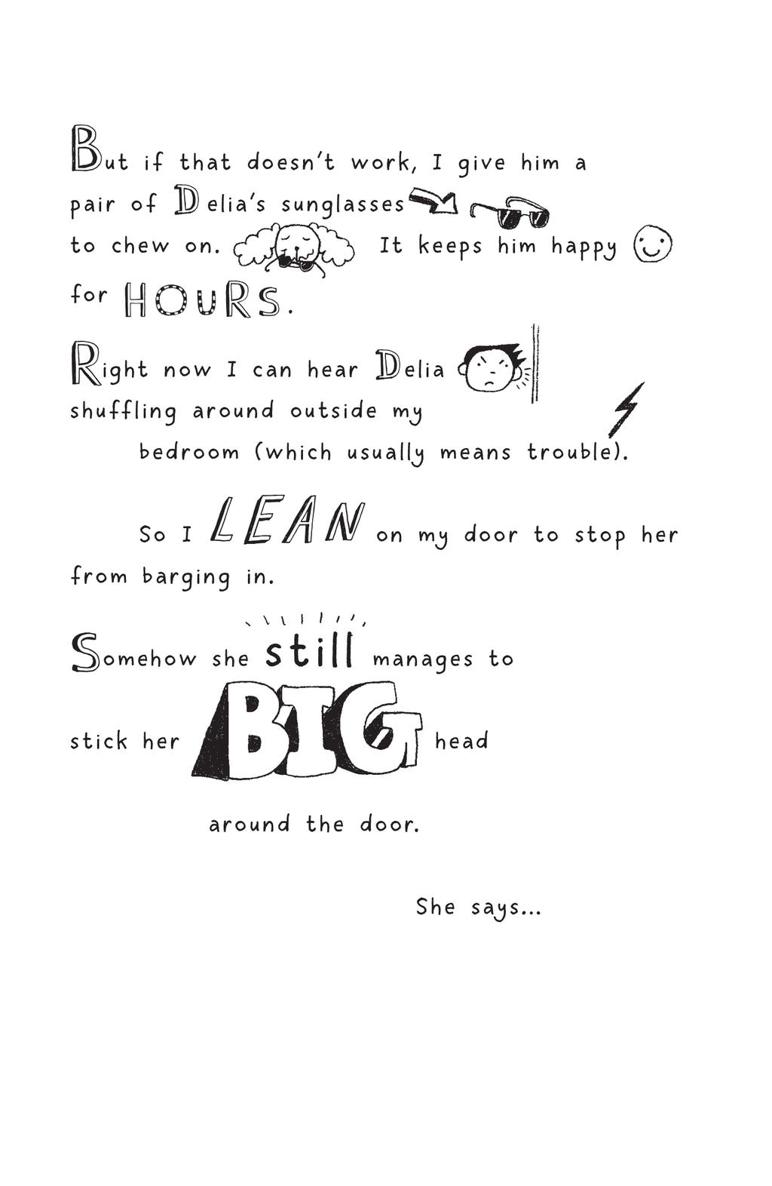 But if that doesn't work, I give him a
pair of Delia's sunglasses
to chew on. It keeps him happy
for HOURS.
Right now I can hear Delia
shuffling around outside my
bedroom (which usually means trouble).
So I LEAN on my door to stop her
from barging in.
Somehow she still manages to
stick her BIG head
around the door.
She says...